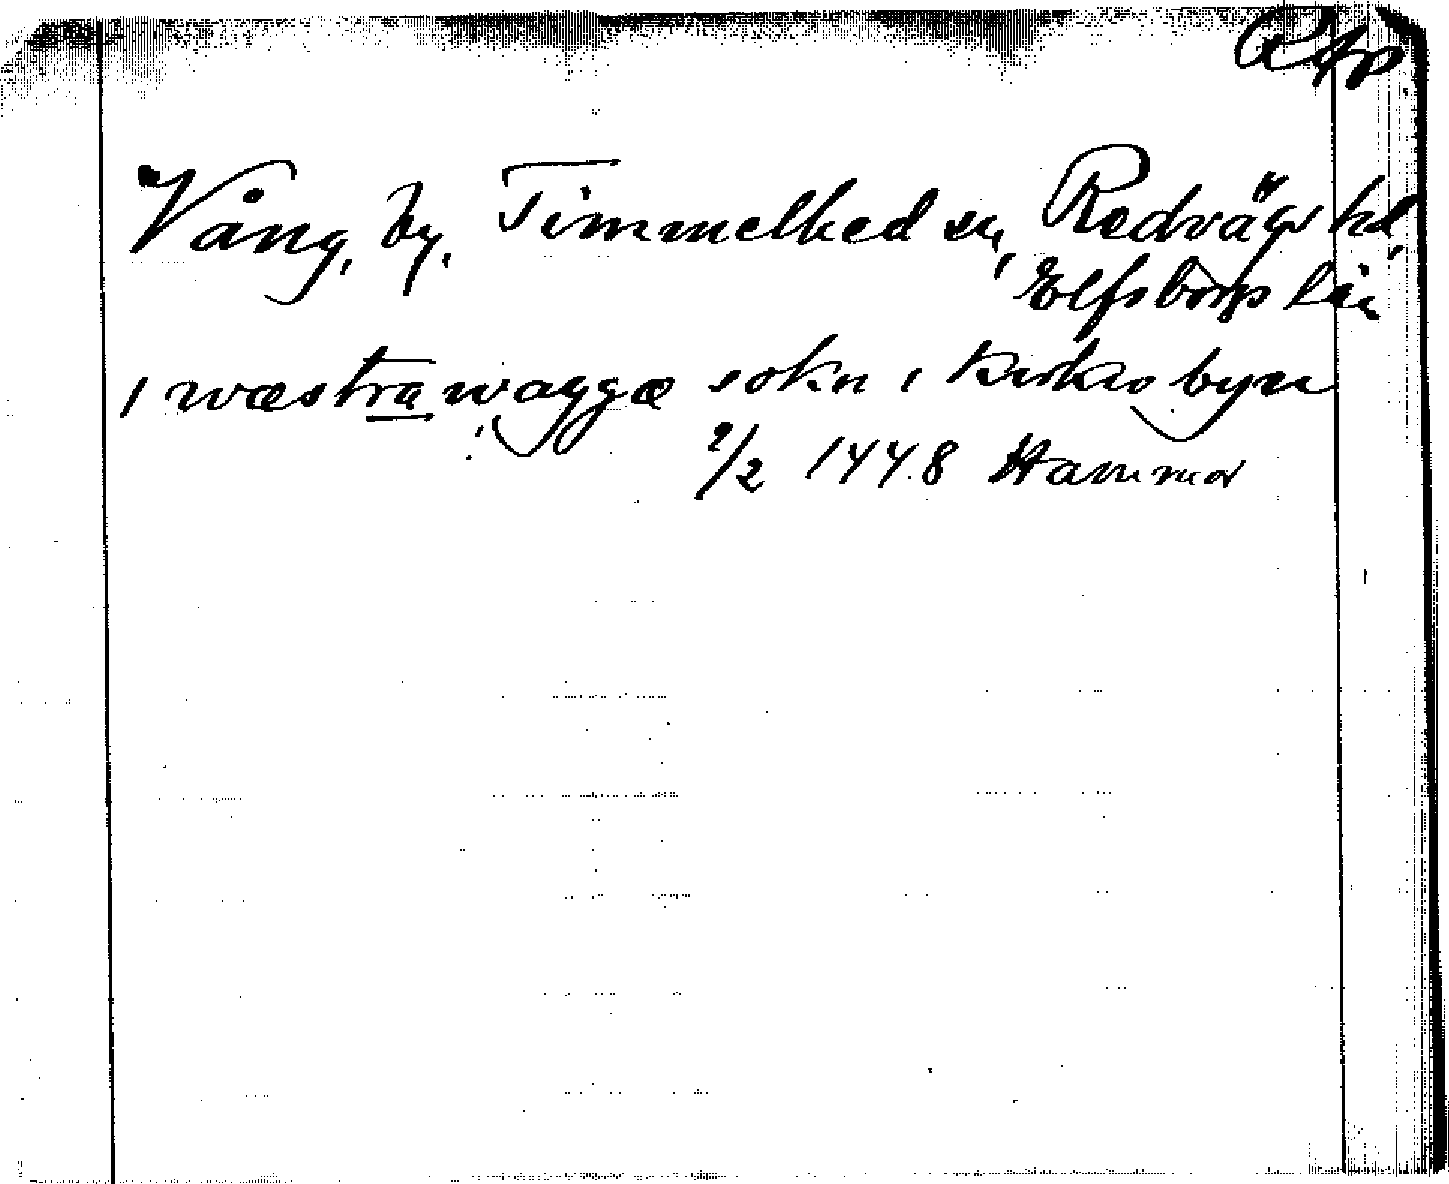 RAp
Vång, by, Timmelhed sn, Redvägs hd,
Elfsborgs län
i wæstra waggæ sokn i kirkio byn
9/2 1448 Hammar